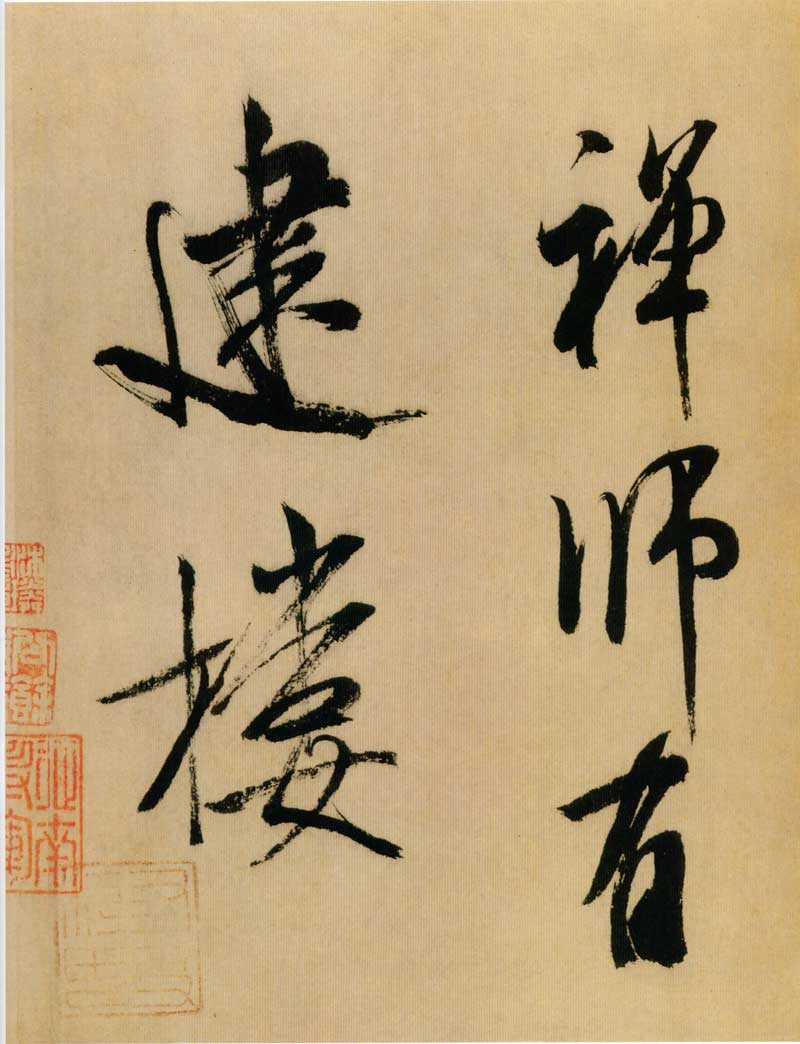 禪師有
建樓